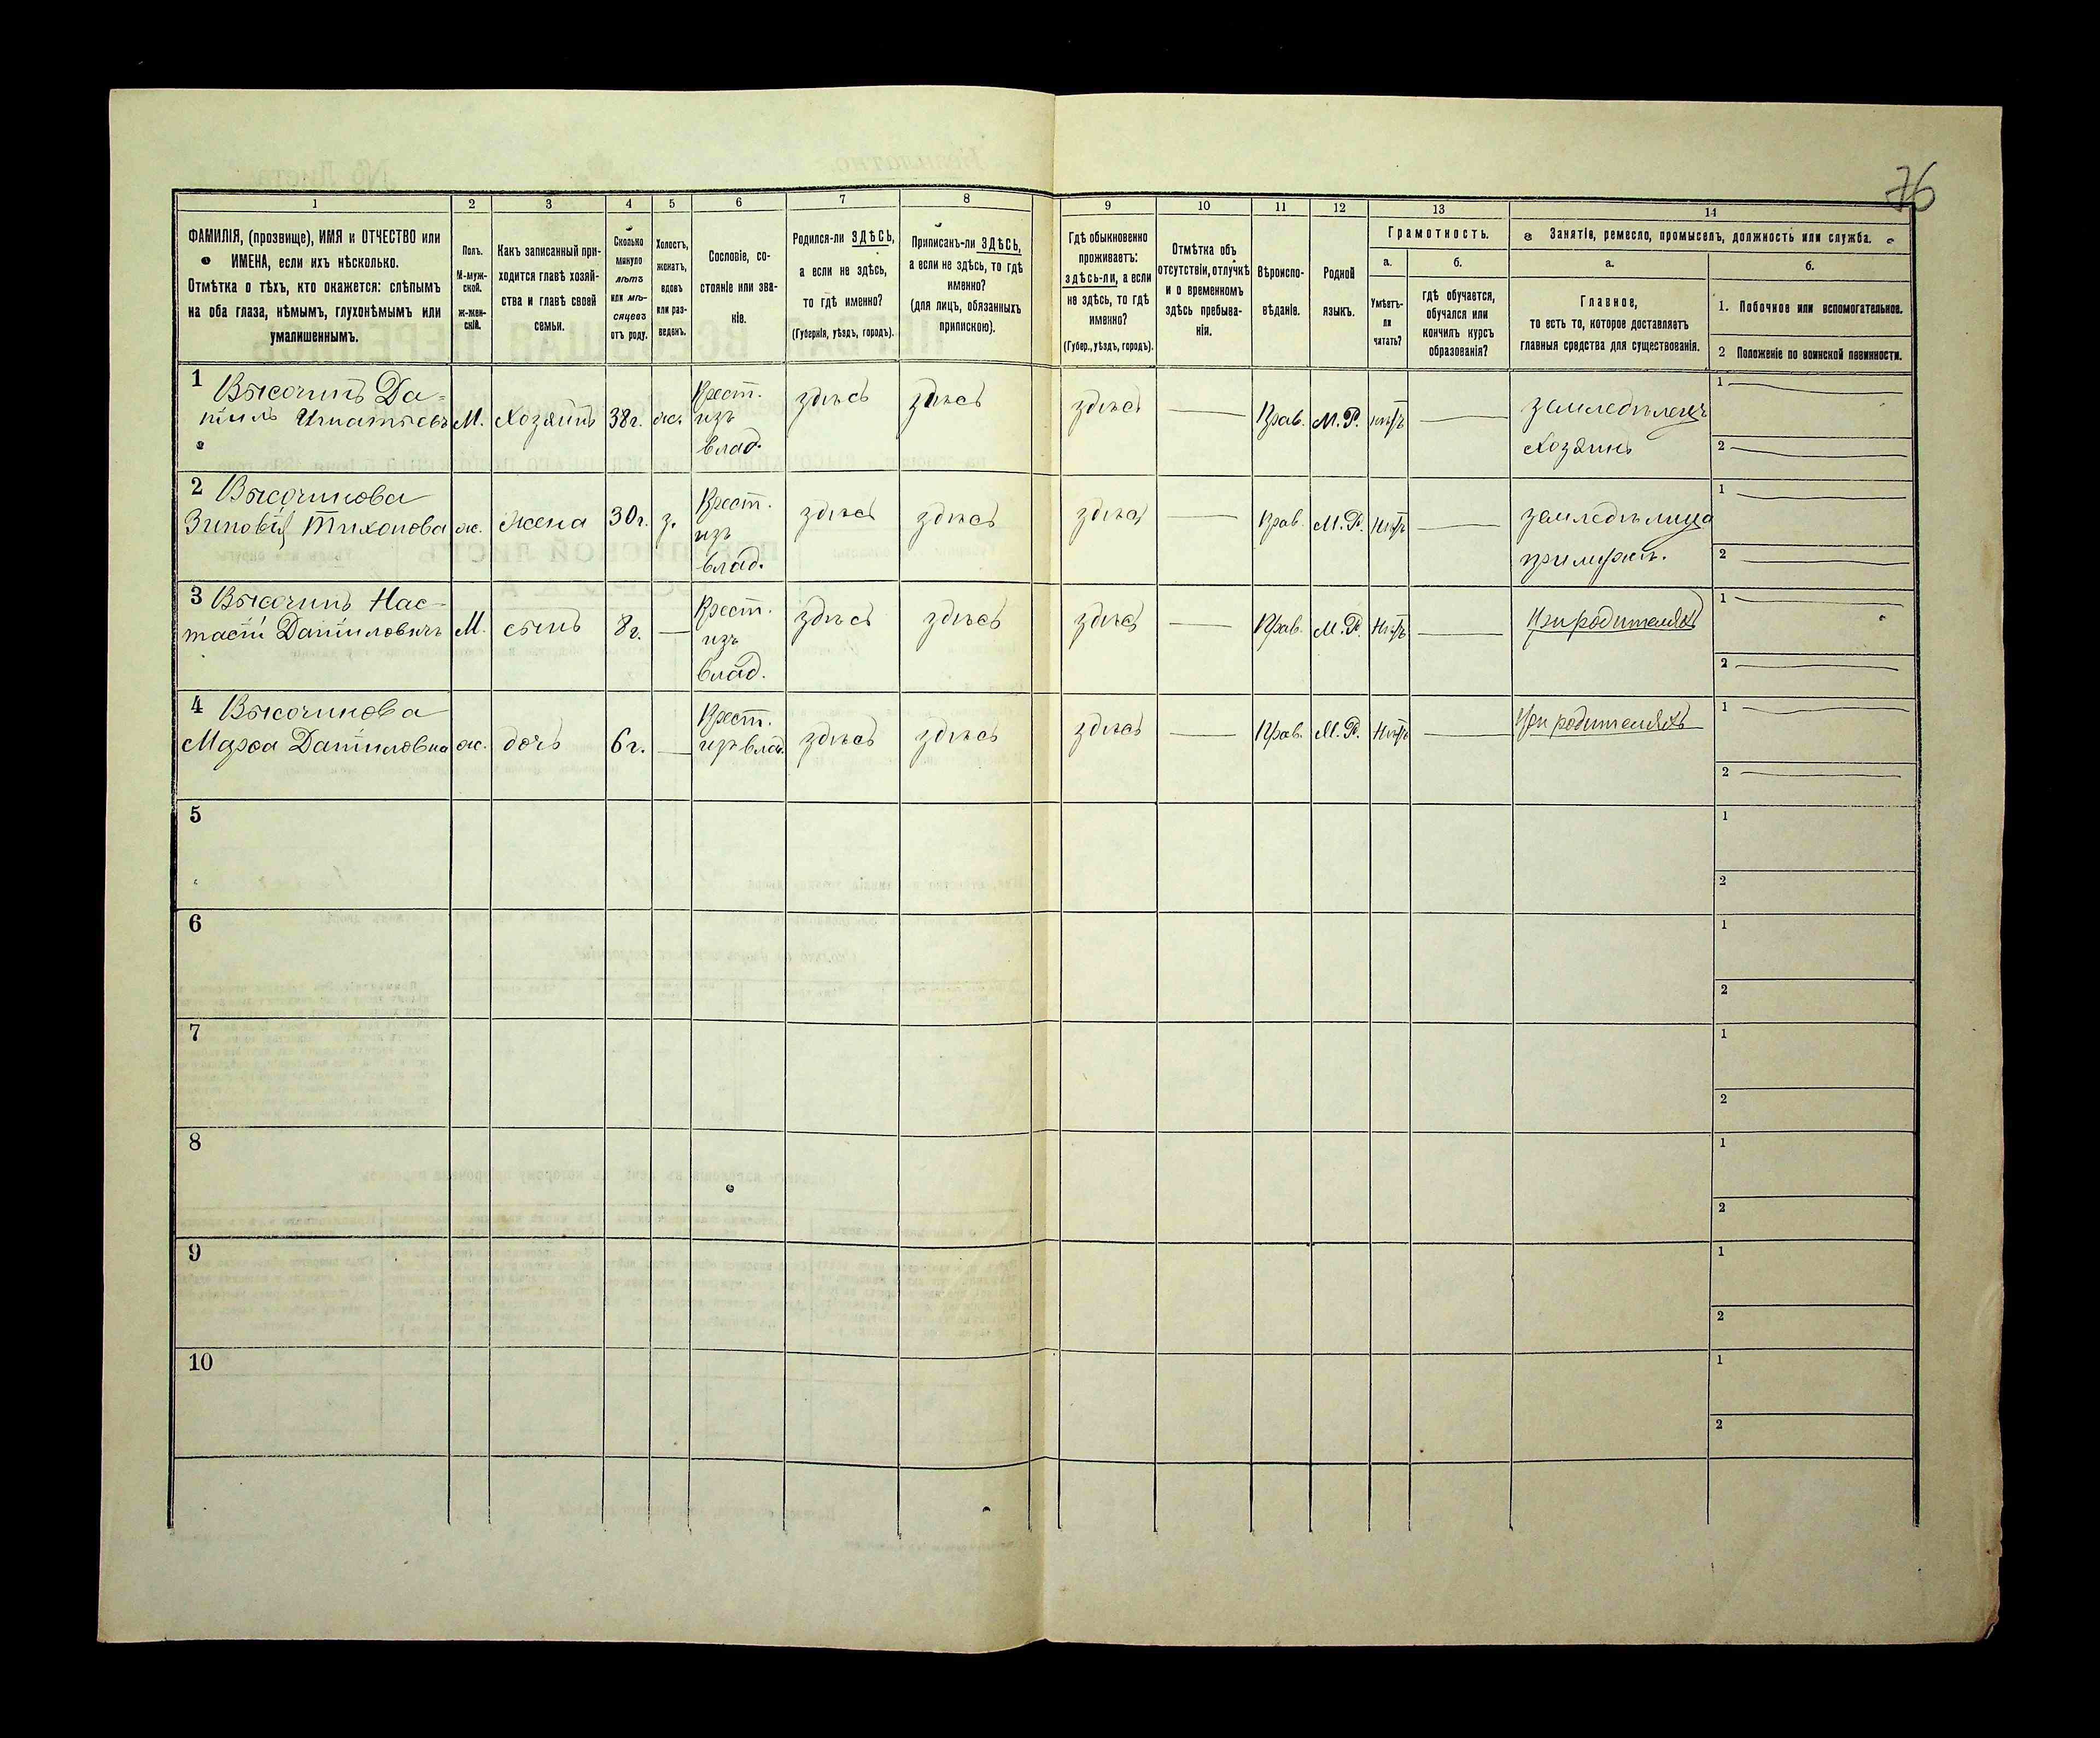 76
1 2 3 4 5 6 7 8 9 10 11 12 13 14
ФАМИЛІЯ, (прозвище), ИМЯ и ОТЧЕСТВО или
ИМЕНА, если ихъ нѣсколько.
Отмѣтка о тѣхъ, кто окажется: слѣпымъ
на оба глаза, нѣмымъ, глухонѣмымъ или
умалишеннымъ.
Полъ.
М-муж-
ской.
ж-жен-
скій.
Какъ записанный при-
ходится главѣ хозяй-
ства и главѣ своей
семьи.
Сколько
минуло
лѣтъ
или мѣ-
сяцевъ
отъ роду.
Холостъ,
женатъ,
вдовъ
или раз-
веденъ.
Сословіе, со-
стояніе или зва-
ніе.
Родился-ли ЗДѢСЬ,
а если не здѣсь,
то гдѣ именно?
(Губернія, уѣздъ, городъ).
Приписанъ-ли ЗДѢСЬ,
а если не здѣсь, то гдѣ
именно?
(для лицъ, обязанныхъ
припискою).
Гдѣ обыкновенно
проживаетъ:
здѣсь-ли, а если
не здѣсь, то гдѣ
именно?
(Губер., уѣздъ, городъ).
Отмѣтка объ
отсутствіи, отлучкѣ
и о временномъ
здѣсь пребыва-
ніи.
Вѣроиспо-
вѣданіе.
Родной
языкъ.
Грамотность.
а.
Умѣетъ-
ли
читать?
б.
гдѣ обучается,
обучался или
кончилъ курсъ
образованія?
Занятіе, ремесло, промыселъ, должность или служба.
а.
Главное,
то есть то, которое доставляетъ
главныя средства для существованія.
б.
1. Побочное или вспомогательное.
2 Положеніе по воинской повинности.
1 Высочинъ Да-
ніилъ Игнатьевъ М. Хозяинъ 38г. ж. Крест. изъ влад. здѣсь здѣсь здѣсь — Прав. М.Р. нѣтъ — земледѣлецъ хозяинъ 1 — 2 —
2 Высочинова
Зиновія Тихонова ж. жена 30г. з. Крест. изъ влад. здѣсь здѣсь здѣсь — Прав. М.Р. Нѣтъ — 1 — 2 —
3 Высочинъ Нас-
тасій Даніиловичъ М. сынъ 8г. — Крест. изъ влад. здѣсь здѣсь здѣсь — Прав. М.Р. Нѣтъ — При родителяхъ 1 — 2 —
4 Высочинова
Марѳа Даніиловна ж. дочь 6г. — Крест. изъ влад. здѣсь здѣсь здѣсь — Прав. М.Р. Нѣтъ — При родителяхъ 1 — 2 —
5 1
2
6 1
2
7 1
2
8 1
2
9 1
2
10 1
2